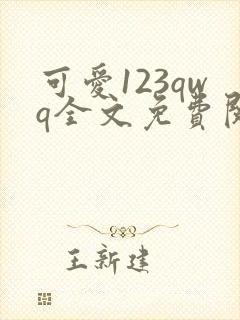 可愛123qw
q全文免費
王新建